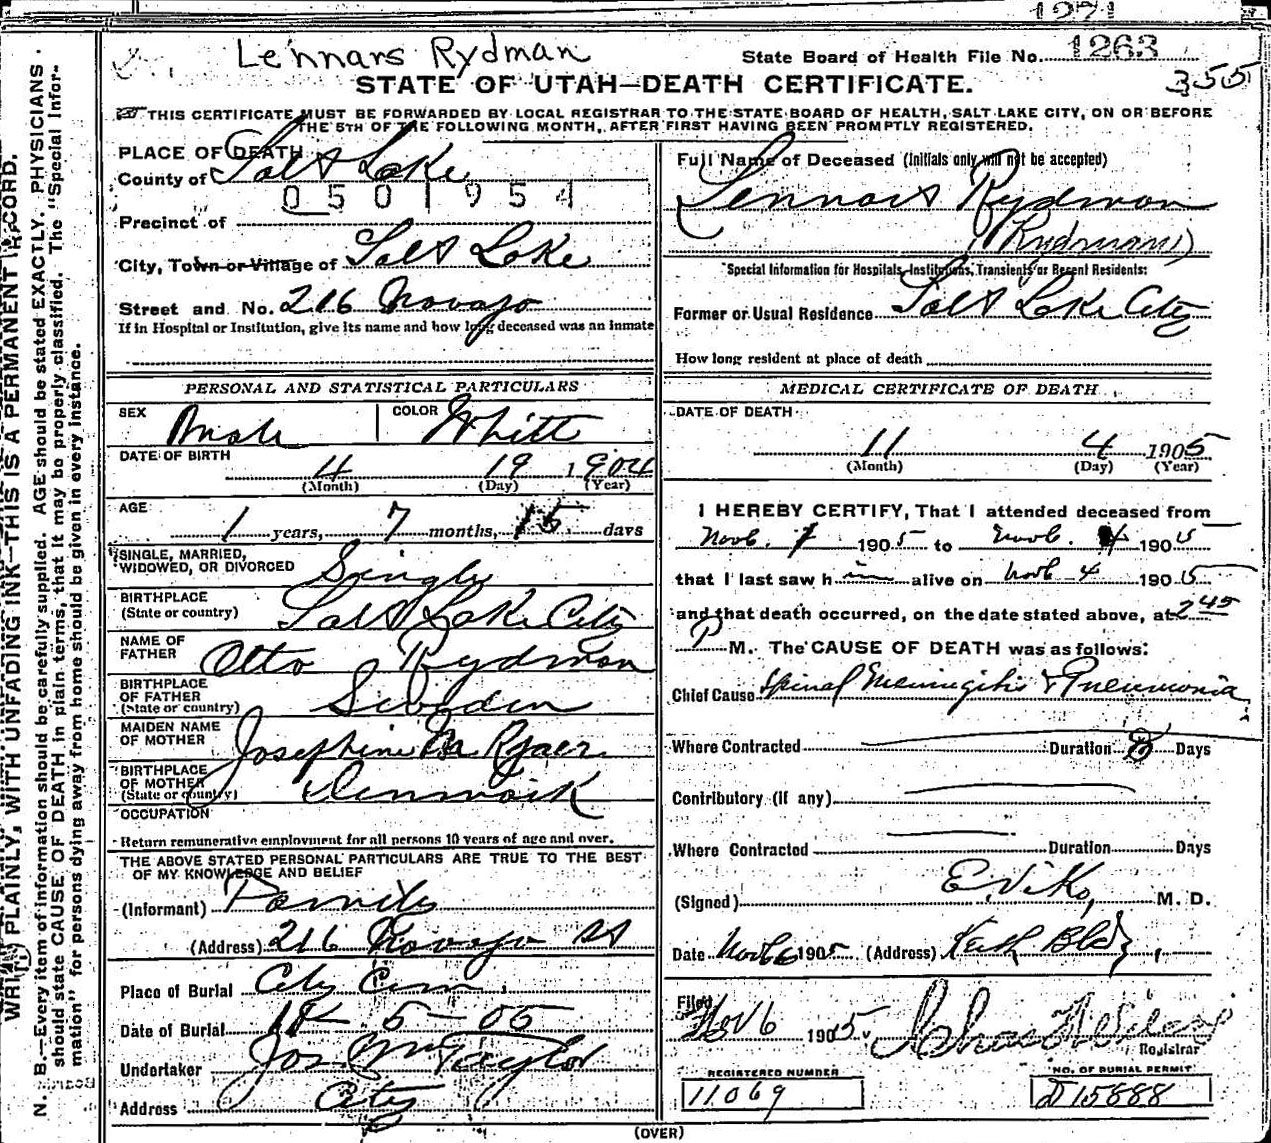 1271
Lennars Rydman
State Board of Health File No. 1263
STATE OF UTAH—DEATH CERTIFICATE.
355
THIS CERTIFICATE MUST BE FORWARDED BY LOCAL REGISTRAR TO THE STATE BOARD OF HEALTH, SALT LAKE CITY, ON OR BEFORE
THE 5TH OF THE FOLLOWING MONTH, AFTER FIRST HAVING BEEN PROMPTLY REGISTERED.
WRITE PLAINLY, WITH UNFADING INK—THIS IS A PERMANENT RECORD.
N. B.—Every item of information should be carefully supplied. AGE should be stated EXACTLY. PHYSICIANS
should state CAUSE OF DEATH in plain terms, that it may be properly classified. The "Special Infor-
mation" for persons dying away from home should be given in every instance.
PLACE OF DEATH
County of Salt Lake
0501954
Precinct of
City, Town or Village of Salt Lake
Street and No. 216 Navajo
If in Hospital or Institution, give its name and how long deceased was an inmate
PERSONAL AND STATISTICAL PARTICULARS
SEX Male COLOR White
DATE OF BIRTH
4 19 1904
(Month) (Day) (Year)
AGE
1 years, 7 months, 15 days
SINGLE, MARRIED,
WIDOWED, OR DIVORCED Single
BIRTHPLACE
(State or country) Salt Lake City
NAME OF
FATHER Otto Rydman
BIRTHPLACE
OF FATHER
(State or country) Sweden
MAIDEN NAME
OF MOTHER Josephine
BIRTHPLACE
OF MOTHER
(State or country) Denmark
OCCUPATION
Return remunerative employment for all persons 10 years of age and over.
THE ABOVE STATED PERSONAL PARTICULARS ARE TRUE TO THE BEST
OF MY KNOWLEDGE AND BELIEF
(Informant) Family
(Address) 216 Navajo St
Place of Burial City Cem
Date of Burial 5 - 05
Undertaker Jos Wm Taylor
Address City
Full Name of Deceased (Initials only will not be accepted)
Lennars Rydman
(Rydman)
Special Information for Hospitals, Institutions, Transients or Recent Residents:
Former or Usual Residence Salt Lake City
How long resident at place of death
MEDICAL CERTIFICATE OF DEATH
DATE OF DEATH
11 4 1905
(Month) (Day) (Year)
I HEREBY CERTIFY, That I attended deceased from
Novb. 1905 to Novb. 4 1905
that I last saw him alive on Novb 4 1905
and that death occurred, on the date stated above, at 2 45
P M. The CAUSE OF DEATH was as follows:
Chief Cause Spinal Meningitis & Pneumonia
Where Contracted Duration 8 Days
Contributory (if any)
Where Contracted Duration Days
(Signed) E Viko, M. D.
Date Nov 6 1905 (Address) Keith Bld
Filed
Nov 6 1905 Chas
Registrar
REGISTERED NUMBER
11069
NO. OF BURIAL PERMIT
D 15888
(OVER)